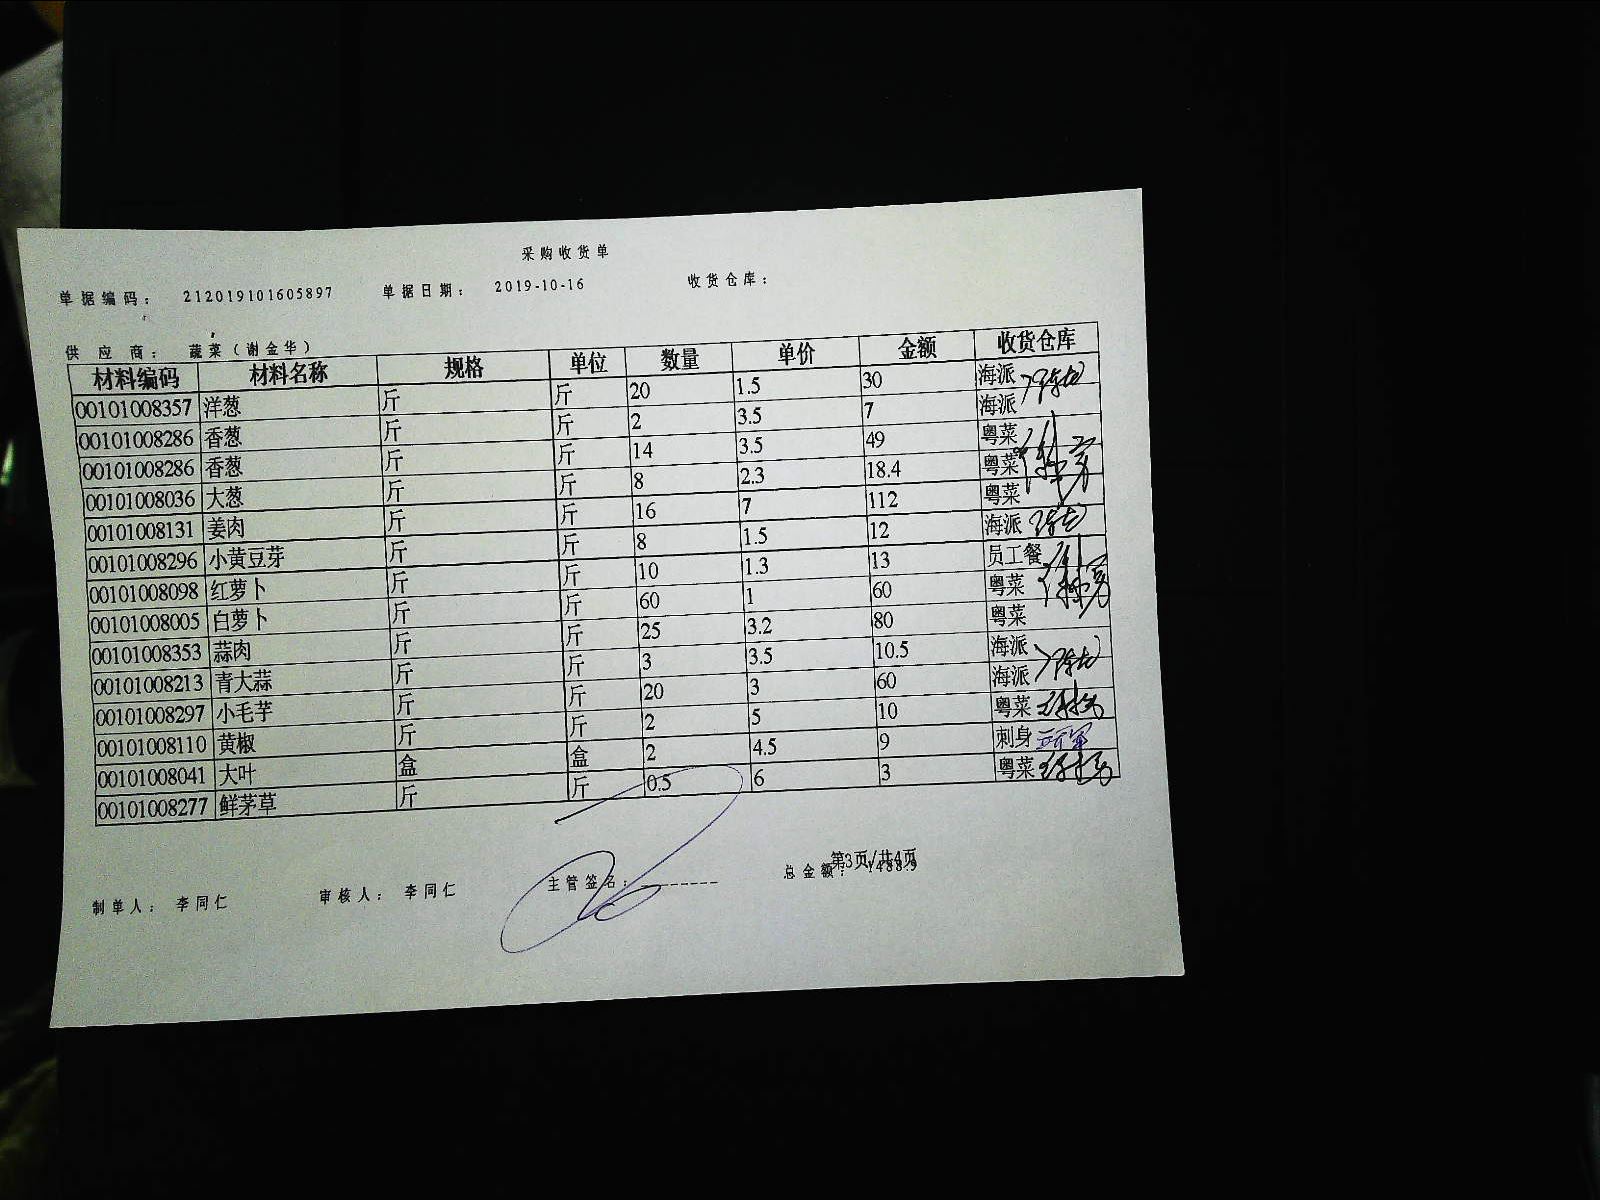 采购收货单
单据编码： 212019101605897 单据日期： 2019-10-16 收货仓库：
供应商： 蔬菜（谢金华）
材料编码 材料名称 规格 单位 数量 单价 金额 收货仓库
00101008357 洋葱 斤 斤 20 1.5 30 海派
00101008286 香葱 斤 斤 2 3.5 7 海派
00101008286 香葱 斤 斤 14 3.5 49 粤菜
00101008036 大葱 斤 斤 8 2.3 18.4 粤菜
00101008131 姜肉 斤 斤 16 7 112 粤菜
00101008296 小黄豆芽 斤 斤 8 1.5 12 海派
00101008098 红萝卜 斤 斤 10 1.3 13 员工餐
00101008005 白萝卜 斤 斤 60 1 60 粤菜
00101008353 蒜肉 斤 斤 25 3.2 80 粤菜
00101008213 青大蒜 斤 斤 3 3.5 10.5 海派
00101008297 小毛芋 斤 斤 20 3 60 海派
00101008110 黄椒 斤 斤 2 5 10 粤菜
00101008041 大叶 盒 盒 2 4.5 9 刺身
00101008277 鲜茅草 斤 斤 0.5 6 3 粤菜
第3页/共4页
制单人： 李同仁 审核人： 李同仁 主管签名：________ 总金额： 1488.9